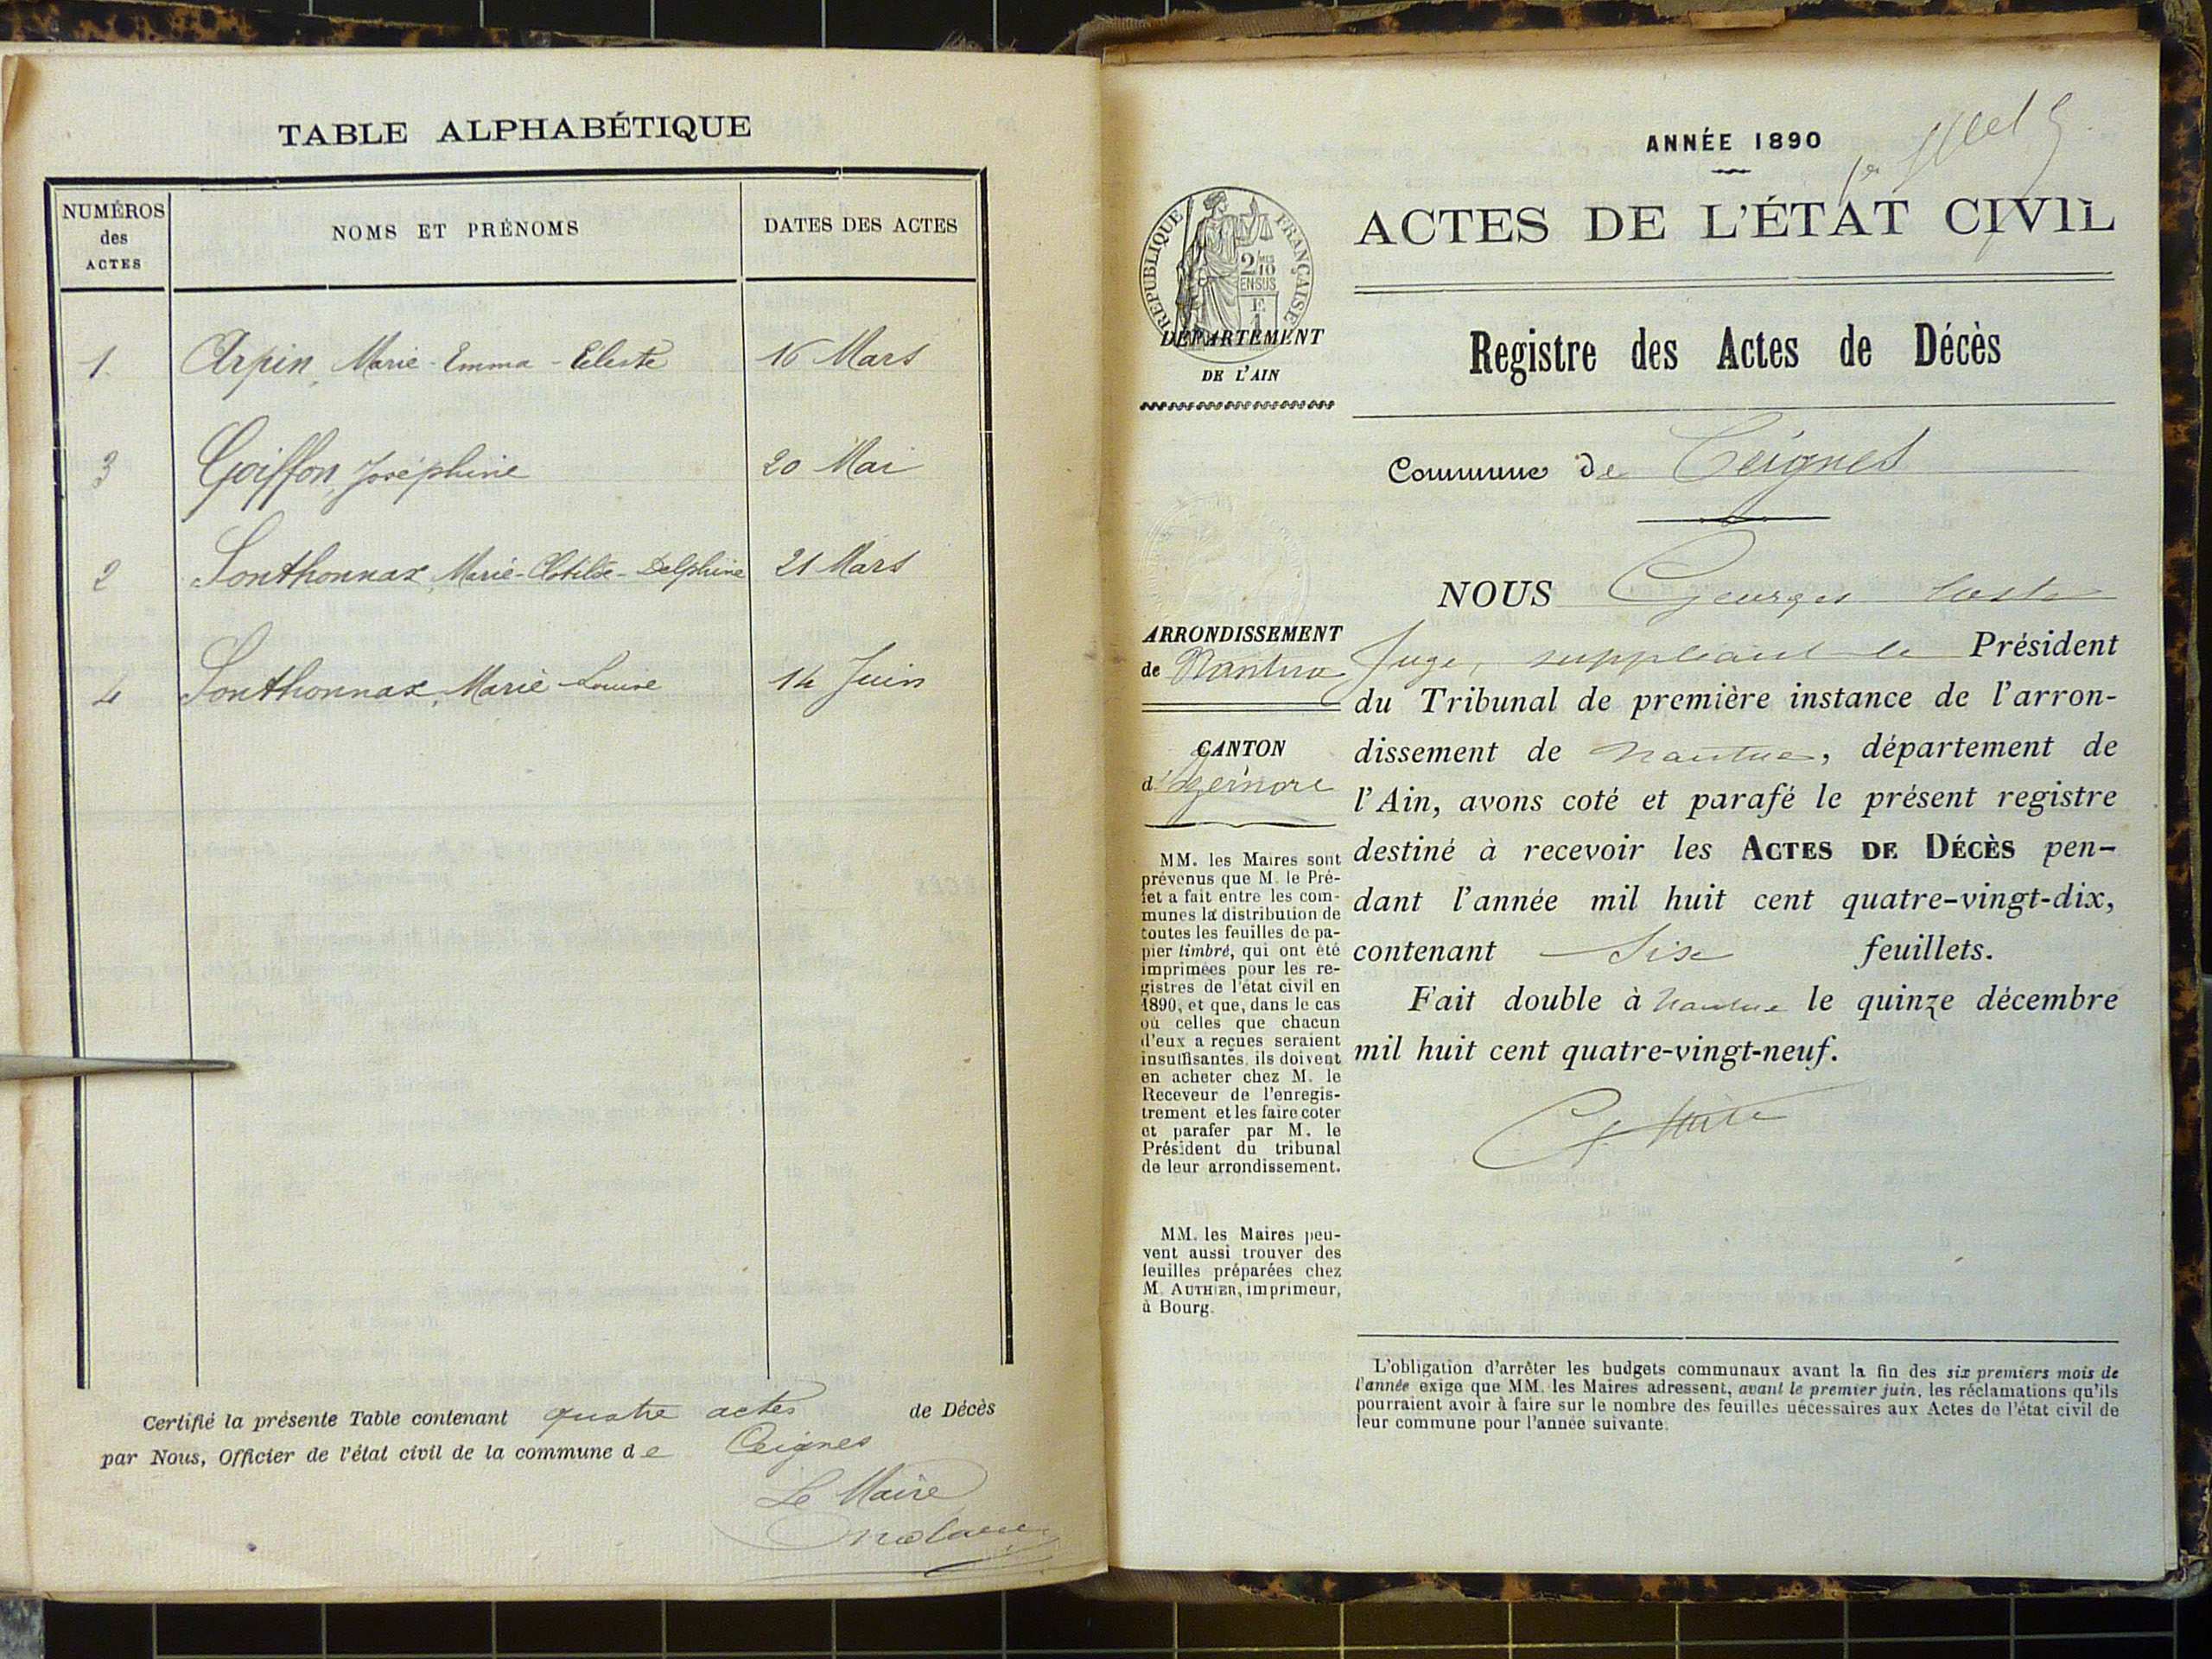 TABLE ALPHABÉTIQUE
NUMÉROS des ACTES
NOMS ET PRÉNOMS
DATES DES ACTES
1. Arpin, Marie-Emma-Céleste 16 Mars
3 Goiffon, Joséphine 20 Mai
2 Sonthonnax, Marie-Clotilde-Delphine 21 Mars
4 Sonthonnax, Marie-Louise 14 Juin
Certifié la présente Table contenant quatre actes de Décès
par Nous, Officier de l'état civil de la commune de Ceignes
Le Maire
ANNÉE 1890
RÉPUBLIQUE FRANÇAISE
2/10 MES
EN SUS
E
1
ACTES DE L'ÉTAT CIVIL
DÉPARTEMENT
DE L'AIN
Registre des Actes de Décès
Commune de Ceignes
ARRONDISSEMENT
de Nantua
CANTON
d'Izernore
MM. les Maires sont
prévenus que M. le Pré-
fet a fait entre les com-
munes la distribution de
toutes les feuilles de pa-
pier timbré, qui ont été
imprimées pour les re-
gistres de l'état civil en
1890, et que, dans le cas
où celles que chacun
d'eux a reçues seraient
insuffisantes, ils doivent
en acheter chez M. le
Receveur de l'enregis-
trement et les faire coter
et parafer par M. le
Président du tribunal
de leur arrondissement.
MM. les Maires peu-
vent aussi trouver des
feuilles préparées chez
M. AUTHIER, imprimeur,
à Bourg.
NOUS Georges
Juge, suppléant le Président
du Tribunal de première instance de l'arron-
dissement de Nantua, département de
l'Ain, avons coté et parafé le présent registre
destiné à recevoir les ACTES DE DÉCÈS pen-
dant l'année mil huit cent quatre-vingt-dix,
contenant Six feuillets.
Fait double à Nantua le quinze décembre
mil huit cent quatre-vingt-neuf.
L'obligation d'arrêter les budgets communaux avant la fin des six premiers mois de
l'année exige que MM. les Maires adressent, avant le premier juin, les réclamations qu'ils
pourraient avoir à faire sur le nombre des feuilles nécessaires aux Actes de l'état civil de
leur commune pour l'année suivante.